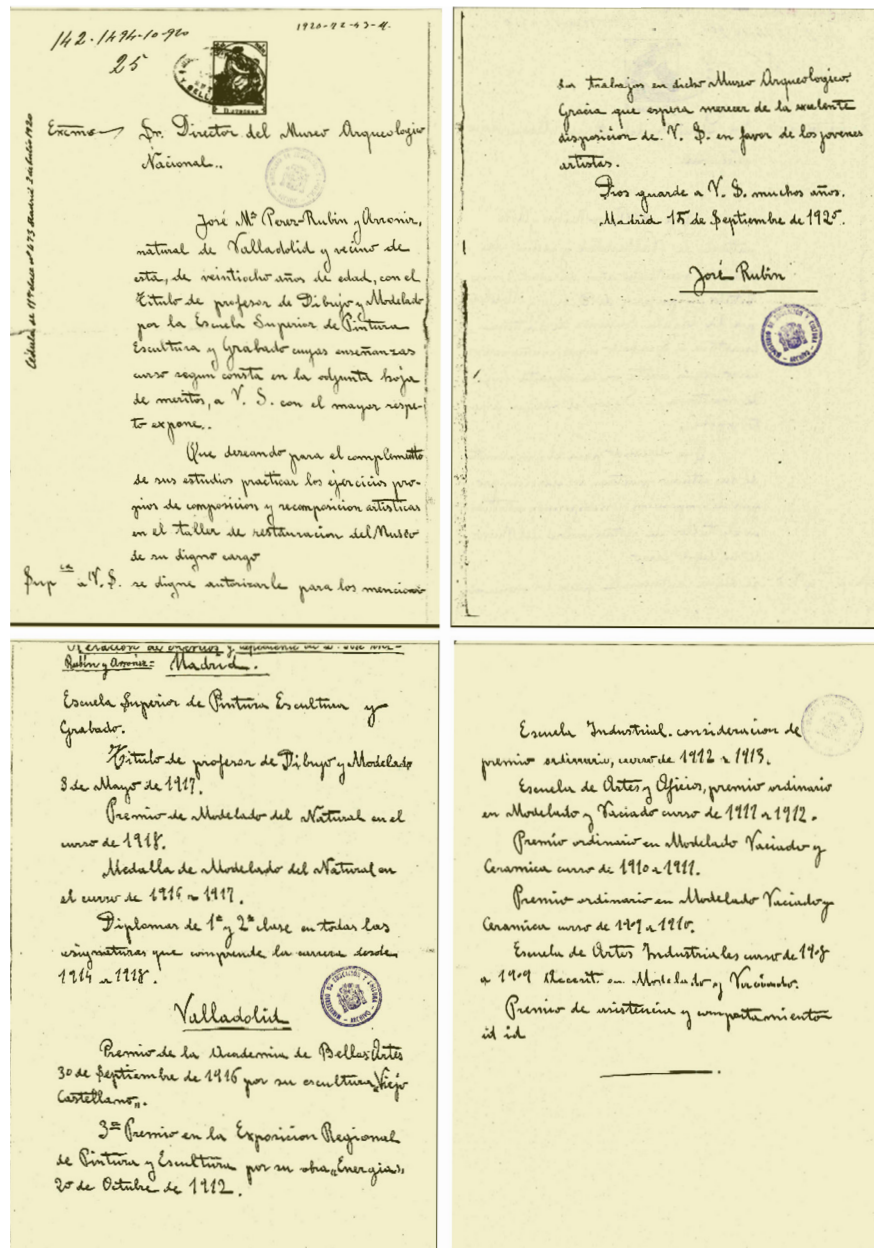 142-1494-10-920
25
1920-92-43-4.
Cédula de 11ª clase nº 673 Madrid 2 de Julio 1920
Excmo Sr. Director del Museo Arqueologico
Nacional..
José Mª Perez-Rubin y Arroniz,
natural de Valladolid y vecino de
esta, de veintiocho años de edad, con el
Titulo de profesor de Dibujo y Modelado
por la Escuela Superior de Pintura
Escultura y Grabado cuyas enseñanzas
curso segun consta en la adjunta hoja
de meritos, a V. S. con el mayor respe-
to expone..
Que deseando para el complemento
de sus estudios practicar los ejercicios pro-
pios de composicion y recomposicion artisticas
en el taller de restauracion del Museo
de su digno cargo
Supca a V. S. se digne autorizarle para los menciona
dos trabajos en dicho Museo Arqueologico.
Gracia que espera merecer de la excelente
disposicion de V. S. en favor de los jovenes
artistas.
Dios guarde a V. S. muchos años.
Madrid 15 de Septiembre de 1920.
José Rubin
Relacion de meritos y de D. José
Rubin y Arroniz= Madrid.
Escuela Superior de Pintura Escultura y
Grabado.
Titulo de profesor de Dibujo y Modelado
3 de Mayo de 1917.
Premio de Modelado del Natural en el
curso de 1918.
Medalla de Modelado del Natural en
el curso de 1916 a 1917.
Diplomas de 1ª y 2ª clase en todas las
asignaturas que comprende la carrera desde
1914 a 1918.
Valladolid
Premio de la Academia de Bellas Artes
30 de Septiembre de 1916 por su escultura „Viejo
Castellano„.
3er Premio en la Exposicion Regional
de Pintura y Escultura por su obra „Energia„
20 de Octubre de 1912.
Escuela Industrial. consideracion de
premio ordinario, curso de 1912 a 1913.
Escuela de Artes y Oficios, premio ordinario
en Modelado y Vaciado curso de 1911 a 1912.
Premio ordinario en Modelado Vaciado y
Ceramica curso de 1910 a 1911.
Premio ordinario en Modelado Vaciado y
Ceramica curso de 1909 a 1910.
Escuela de Artes Industriales curso de 1908
a 1909 Accesit. en Modelado y Vaciado.
Premio de asistencia y comportamiento
id id